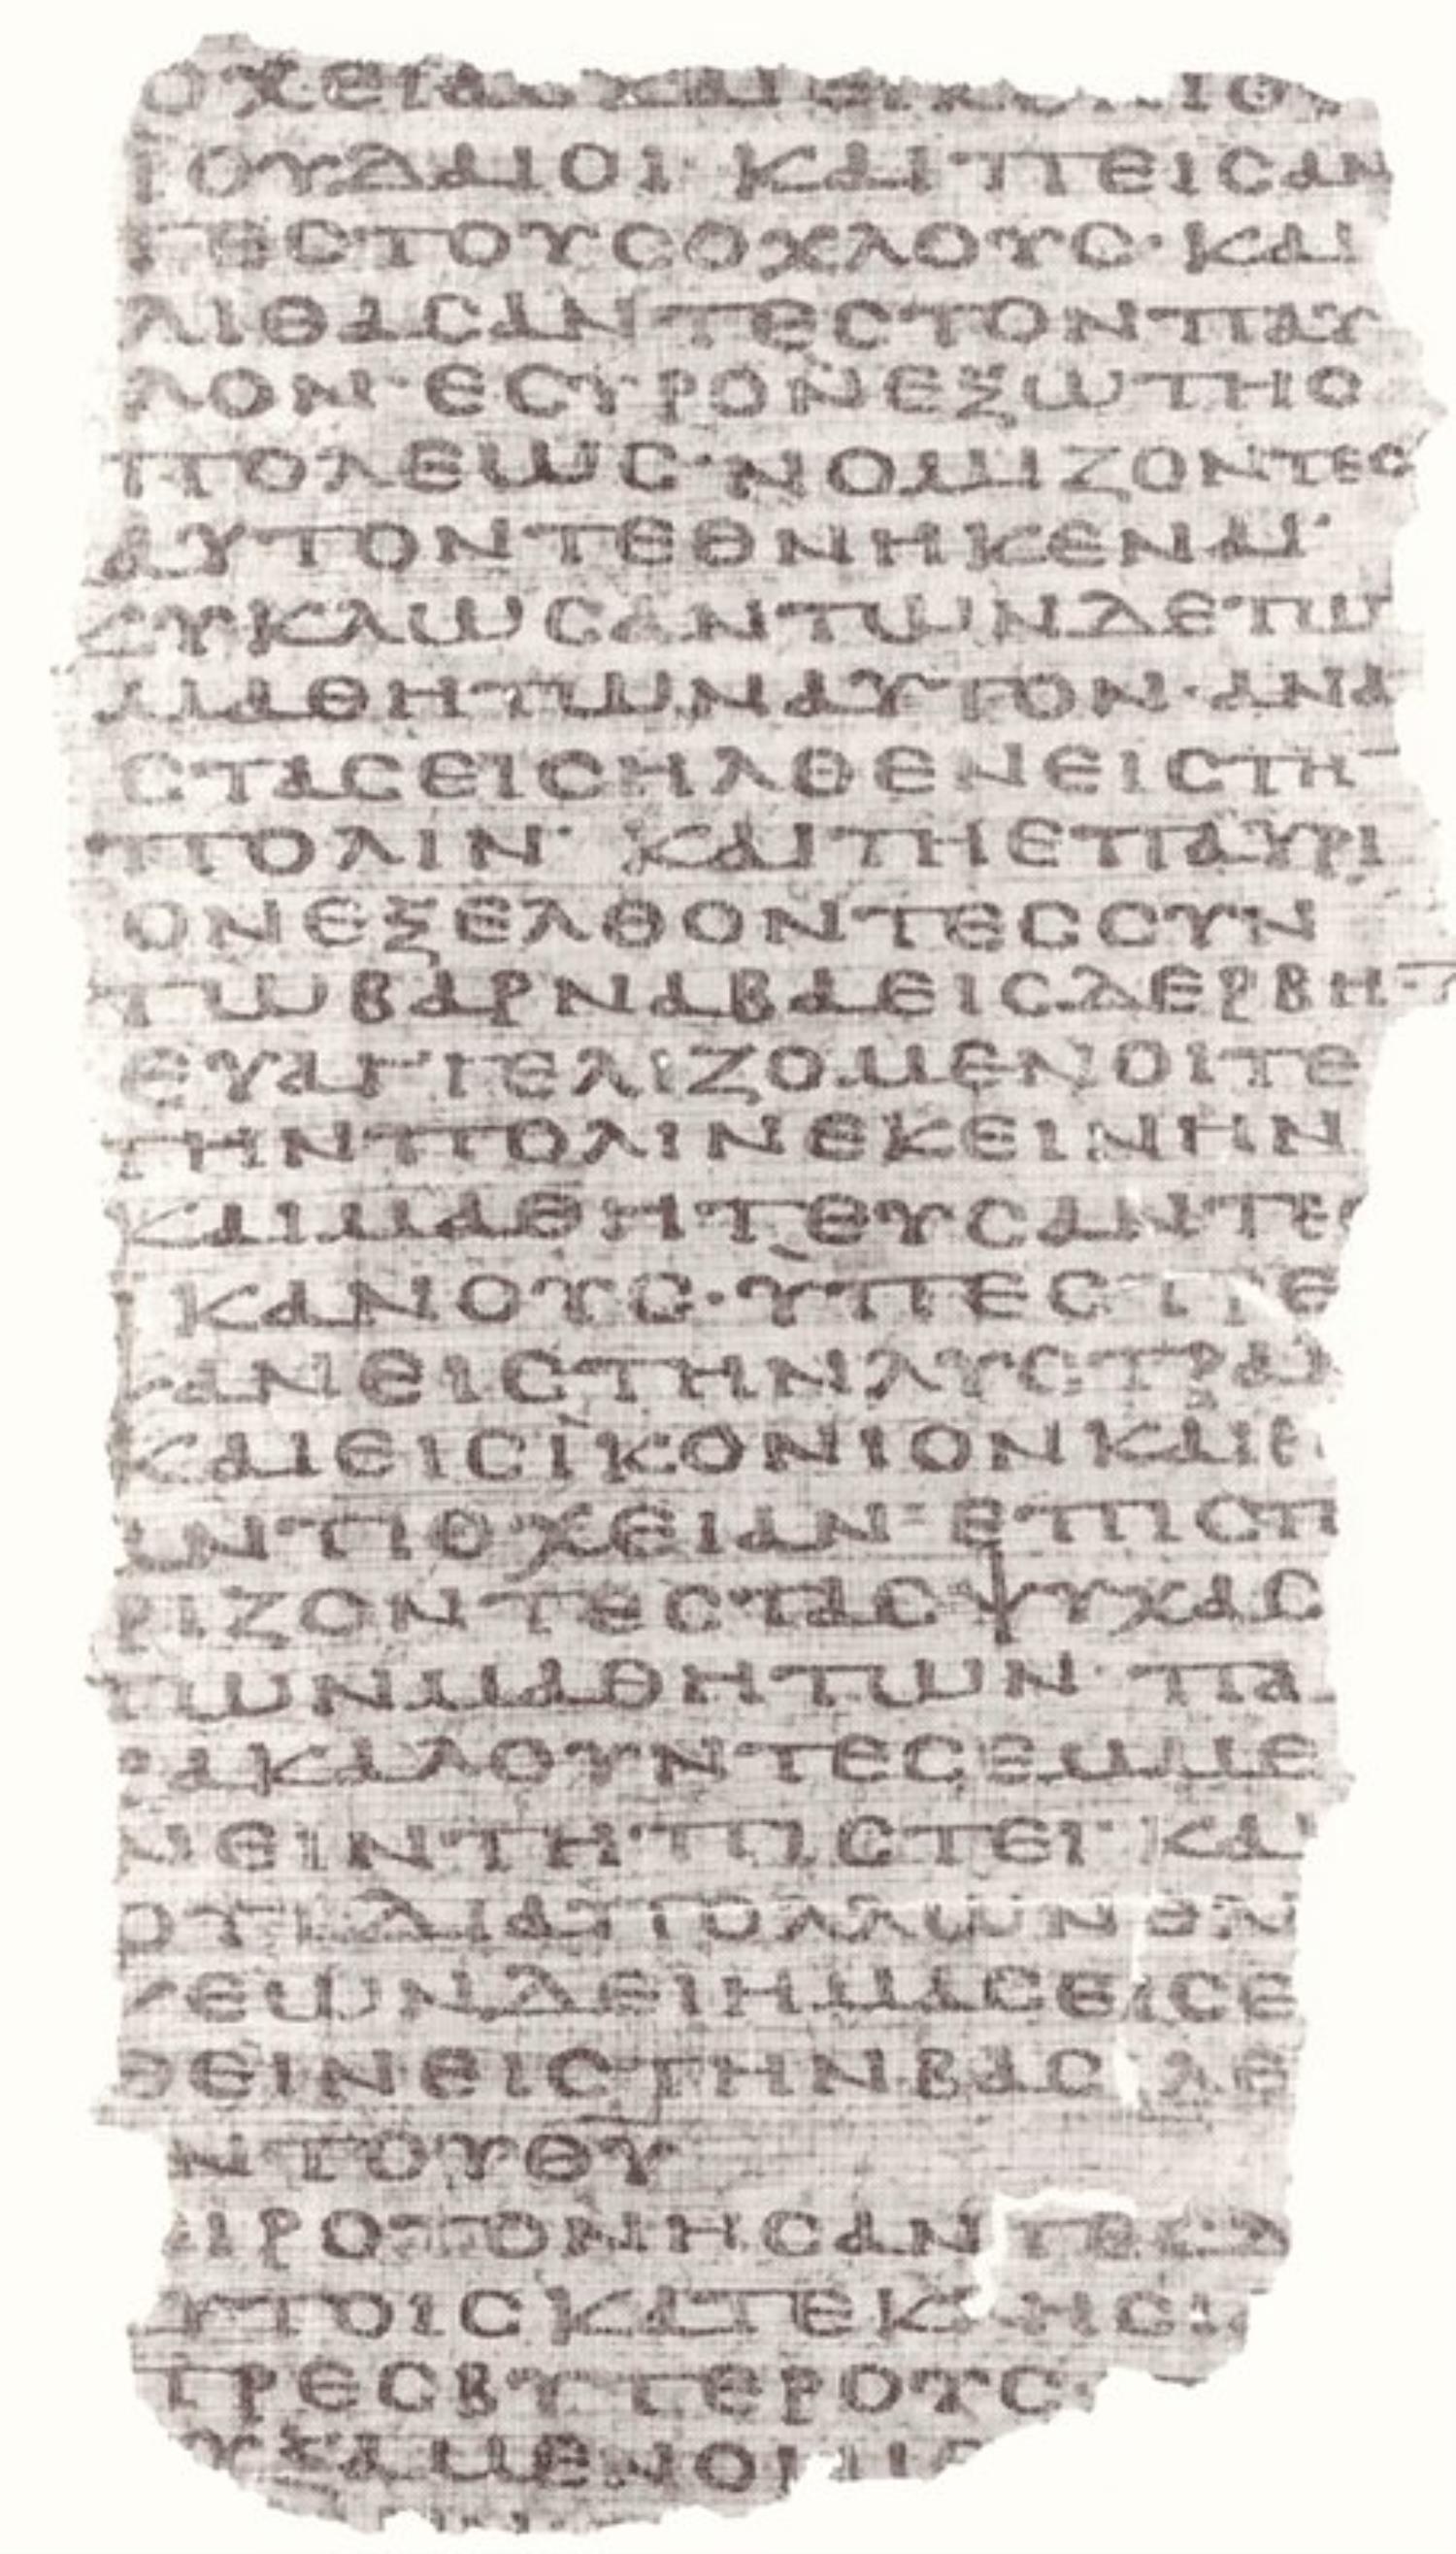 ΟΧΕΙΑϹ ΚΑΙ ΕΙΚΟΝΙΟΥ
ΙΟΥΔΑΙΟΙ· ΚΑΙ ΠΕΙϹΑΝ
ΤΕϹΤΟΥϹΟΧΛΟΥϹ· ΚΑΙ
ΛΙΘΑϹΑΝΤΕϹΤΟΝΠΑΥ
ΛΟΝ· ΕϹΥΡΟΝΕΞΩΤΗϹ
ΠΟΛΕΩϹ· ΝΟΜΙΖΟΝΤΕϹ
ΑΥΤΟΝΤΕΘΝΗΚΕΝΑΙ·
ΚΥΚΛΩϹΑΝΤΩΝΔΕΤΩ
ΜΑΘΗΤΩΝΑΥΤΟΝ· ΑΝΑ
ϹΤΑϹΕΙϹΗΛΘΕΝΕΙϹΤΗ̅
ΠΟΛΙΝ· ΚΑΙΤΗΕΠΑΥΡΙ
ΟΝΕΞΕΛΘΟΝΤΕϹϹΥΝ
ΤΩΒΑΡΝΑΒΑΕΙϹΔΕΡΒΗ̅·
ΕΥΑΓΓΕΛΙΖΟΜΕΝΟΙΤΕ
ΤΗΝΠΟΛΙΝΕΚΕΙΝΗΝ
ΚΑΙΜΑΘΗΤΕΥϹΑΝΤΕϹ
ΚΑΝΟΥϹ· ΥΠΕϹΤΡΕ
ΨΑΝΕΙϹΤΗΝΛΥϹΤΡΑΝ
ΚΑΙΕΙϹΪΚΟΝΙΟΝΚΑΙΕΙ
ΑΝΤΙΟΧΕΙΑΝ· ΕΠΙϹΤΗ
ΡΙΖΟΝΤΕϹΤΑϹΨΥΧΑϹ
ΤΩΝΜΑΘΗΤΩΝ· ΠΑ
ΡΑΚΑΛΟΥΝΤΕϹΕΜΜΕ
ΝΕΙΝΤΗΠΙϹΤΕΙ· ΚΑΙ
ΟΤΙΔΙΑΠΟΛΛΩΝΘΛΙ
ΨΕΩΝΔΕΙΗΜΑϹΕΙϹΕΛ
ΘΕΙΝΕΙϹΤΗΝΒΑϹΙΛΕ
ΑΝΤΟΥΘΥ·
ΕΙΡΟΤΟΝΗϹΑΝΤΕϹΔ
ΑΥΤΟΙϹΚΑΤΕΚΛΗϹΙΑ
ΠΡΕϹΒΥΤΕΡΟΥϹ·
ΥΞΑΜΕΝΟΙ